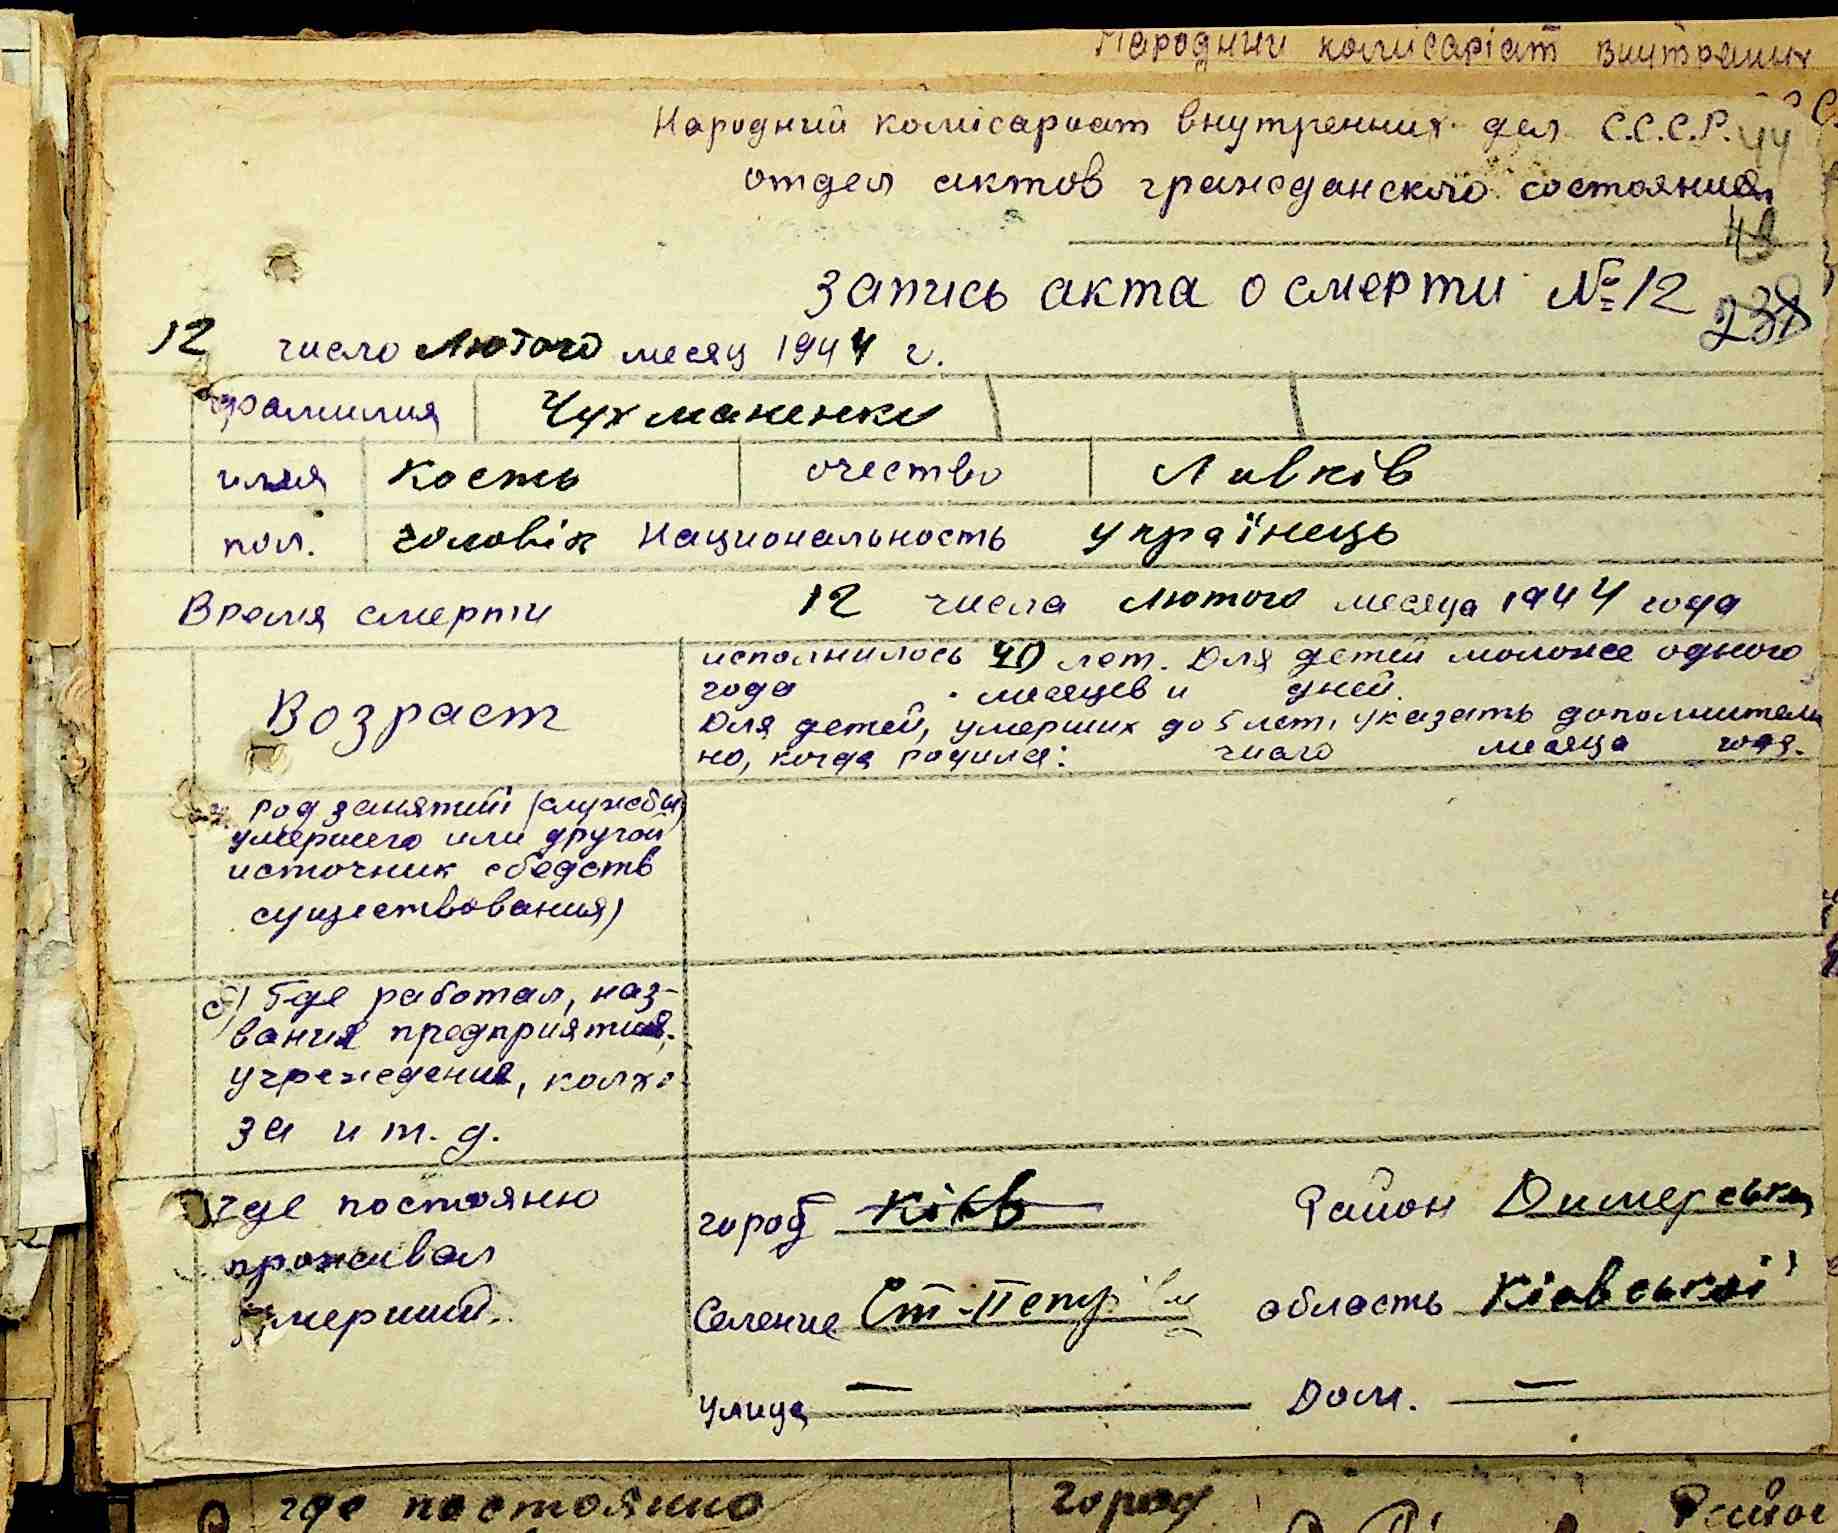 Народний комісаріат внутрених
Народний комісариат внутренних дел С.С.С.Р. 44
отдел актов гражданскло состояния
43
Запись акта о смерти № 12
238
12 число Лютого месяц 1944 г.
фамилия Чухманенко
имя Кость очество Лавків
пол. чоловік Национальность українець
Время смерти 12 числа Лютого месяца 1944 года
Возраст
исполнилось 40 лет. Для детей моложе одного
года месяцев и дней.
Для детей, умерших до 5 лет, указать дополнитель
но, когда родился: число месяца года.
род занятий (службы)
умершего или другой
источник сведств
существования)
б) Где работал, наз-
вания предприятия,
учреждения, колхо-
за и т. д.
где постояно
проживал
умерший.
город Київ Район Димерськи
Селение Ст-Петр область Київської
улица — Дом. —
где постоянно город Район